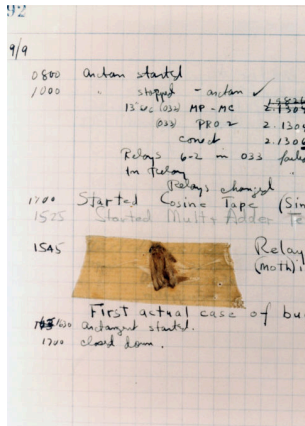 92
9/9
0800 Antan started
1000 " stopped - antan ✓
13" UC (032) MP - MC
(033) PRO 2 2.130
conect 2.130
Relays 6-2 in 033
In Relay
Relays changed
1700 Started Cosine Tape (Sin
1525 Started Mult+Adder Te
1545 Relay
(moth) i
First actual case of bu
1630 antangent started.
1700 closed down.